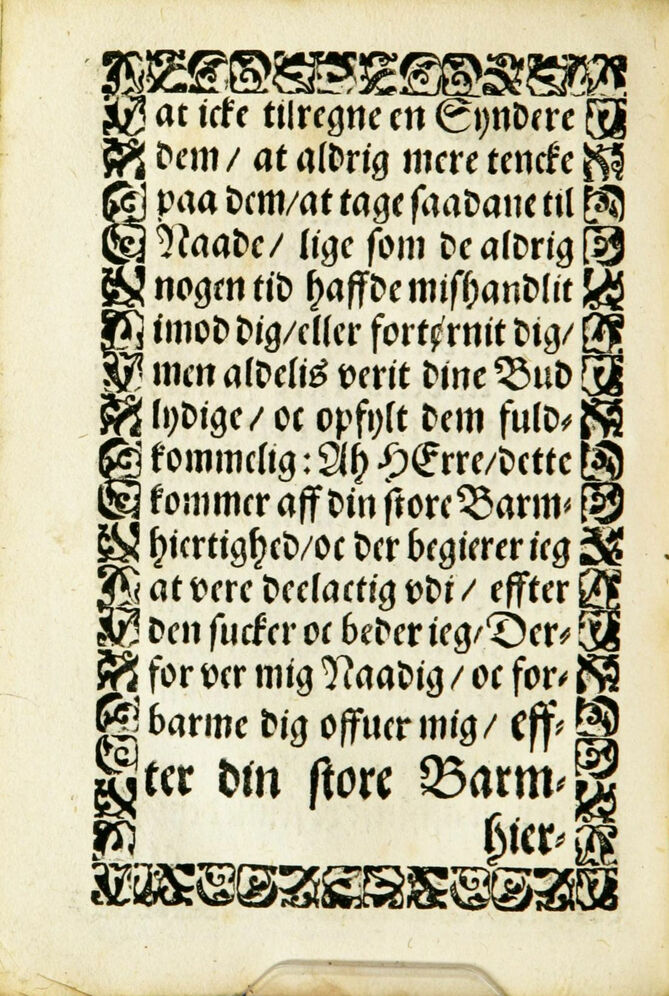 at icke tilregne en Syndere
dem / at aldrig mere tencke
paa dem/at tage saadane til
Naade / lige som de aldrig
nogen tid haffde mishandlit
imod dig/eller fortørnit dig/
men aldelis verit dine Bud
lydige / oc opfylt dem fuld⸗
kommelig: Ah HErre/dette
kommer aff din store Barm⸗
hiertighed/oc der begierer ieg
at vere deelactig vdi / effter
den sucker oc beder ieg/Der⸗
for ver mig Naadig / oc for⸗
barme dig offuer mig / eff⸗
ter din store Barm⸗
hier⸗